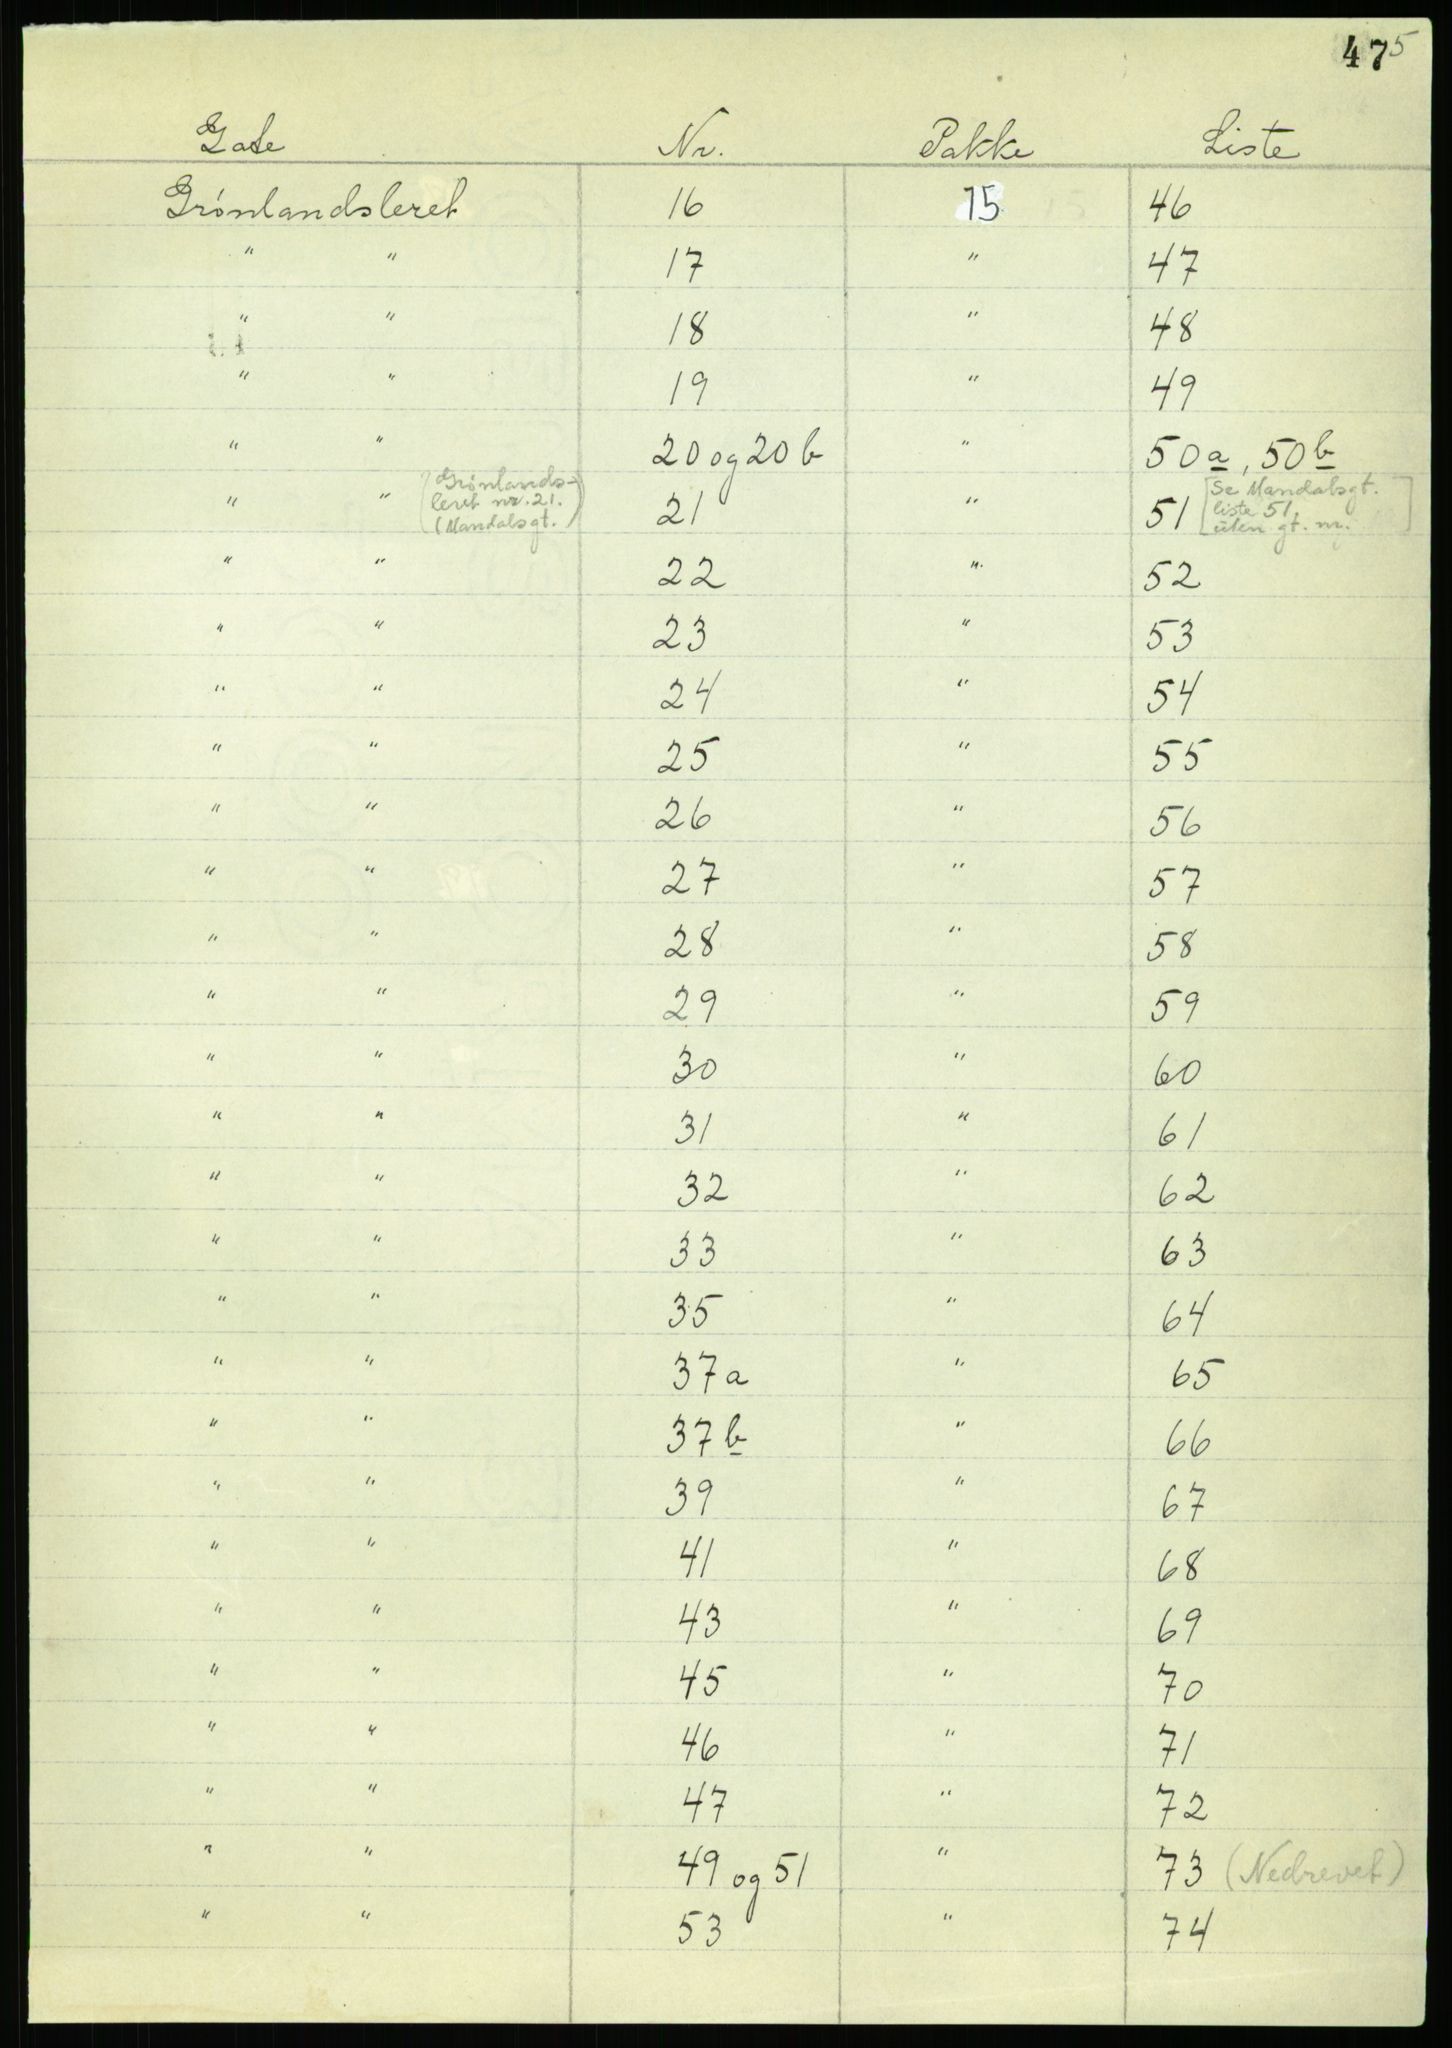 475
Gate Nr. Pakke Liste
Grønlandsleret 16 15 46
" " 17 " 47
" " 18 " 48
" " 19 " 49
" " 20 og 20 b " 50a, 50b
" " (Grønlands-
leret nr. 21.
(Mandalsgt.) 21 " 51 [Se Mandalsgt.
liste 51,
uten gt. nr.]
" " 22 " 52
" " 23 " 53
" " 24 " 54
" " 25 " 55
" " 26 " 56
" " 27 " 57
" " 28 " 58
" " 29 " 59
" " 30 " 60
" " 31 " 61
" " 32 " 62
" " 33 " 63
" " 35 " 64
" " 37a " 65
" " 37b " 66
" " 39 " 67
" " 41 " 68
" " 43 " 69
" " 45 " 70
" " 46 " 71
" " 47 " 72
" " 49 og 51 " 73 (Nedrevet)
" " 53 " 74